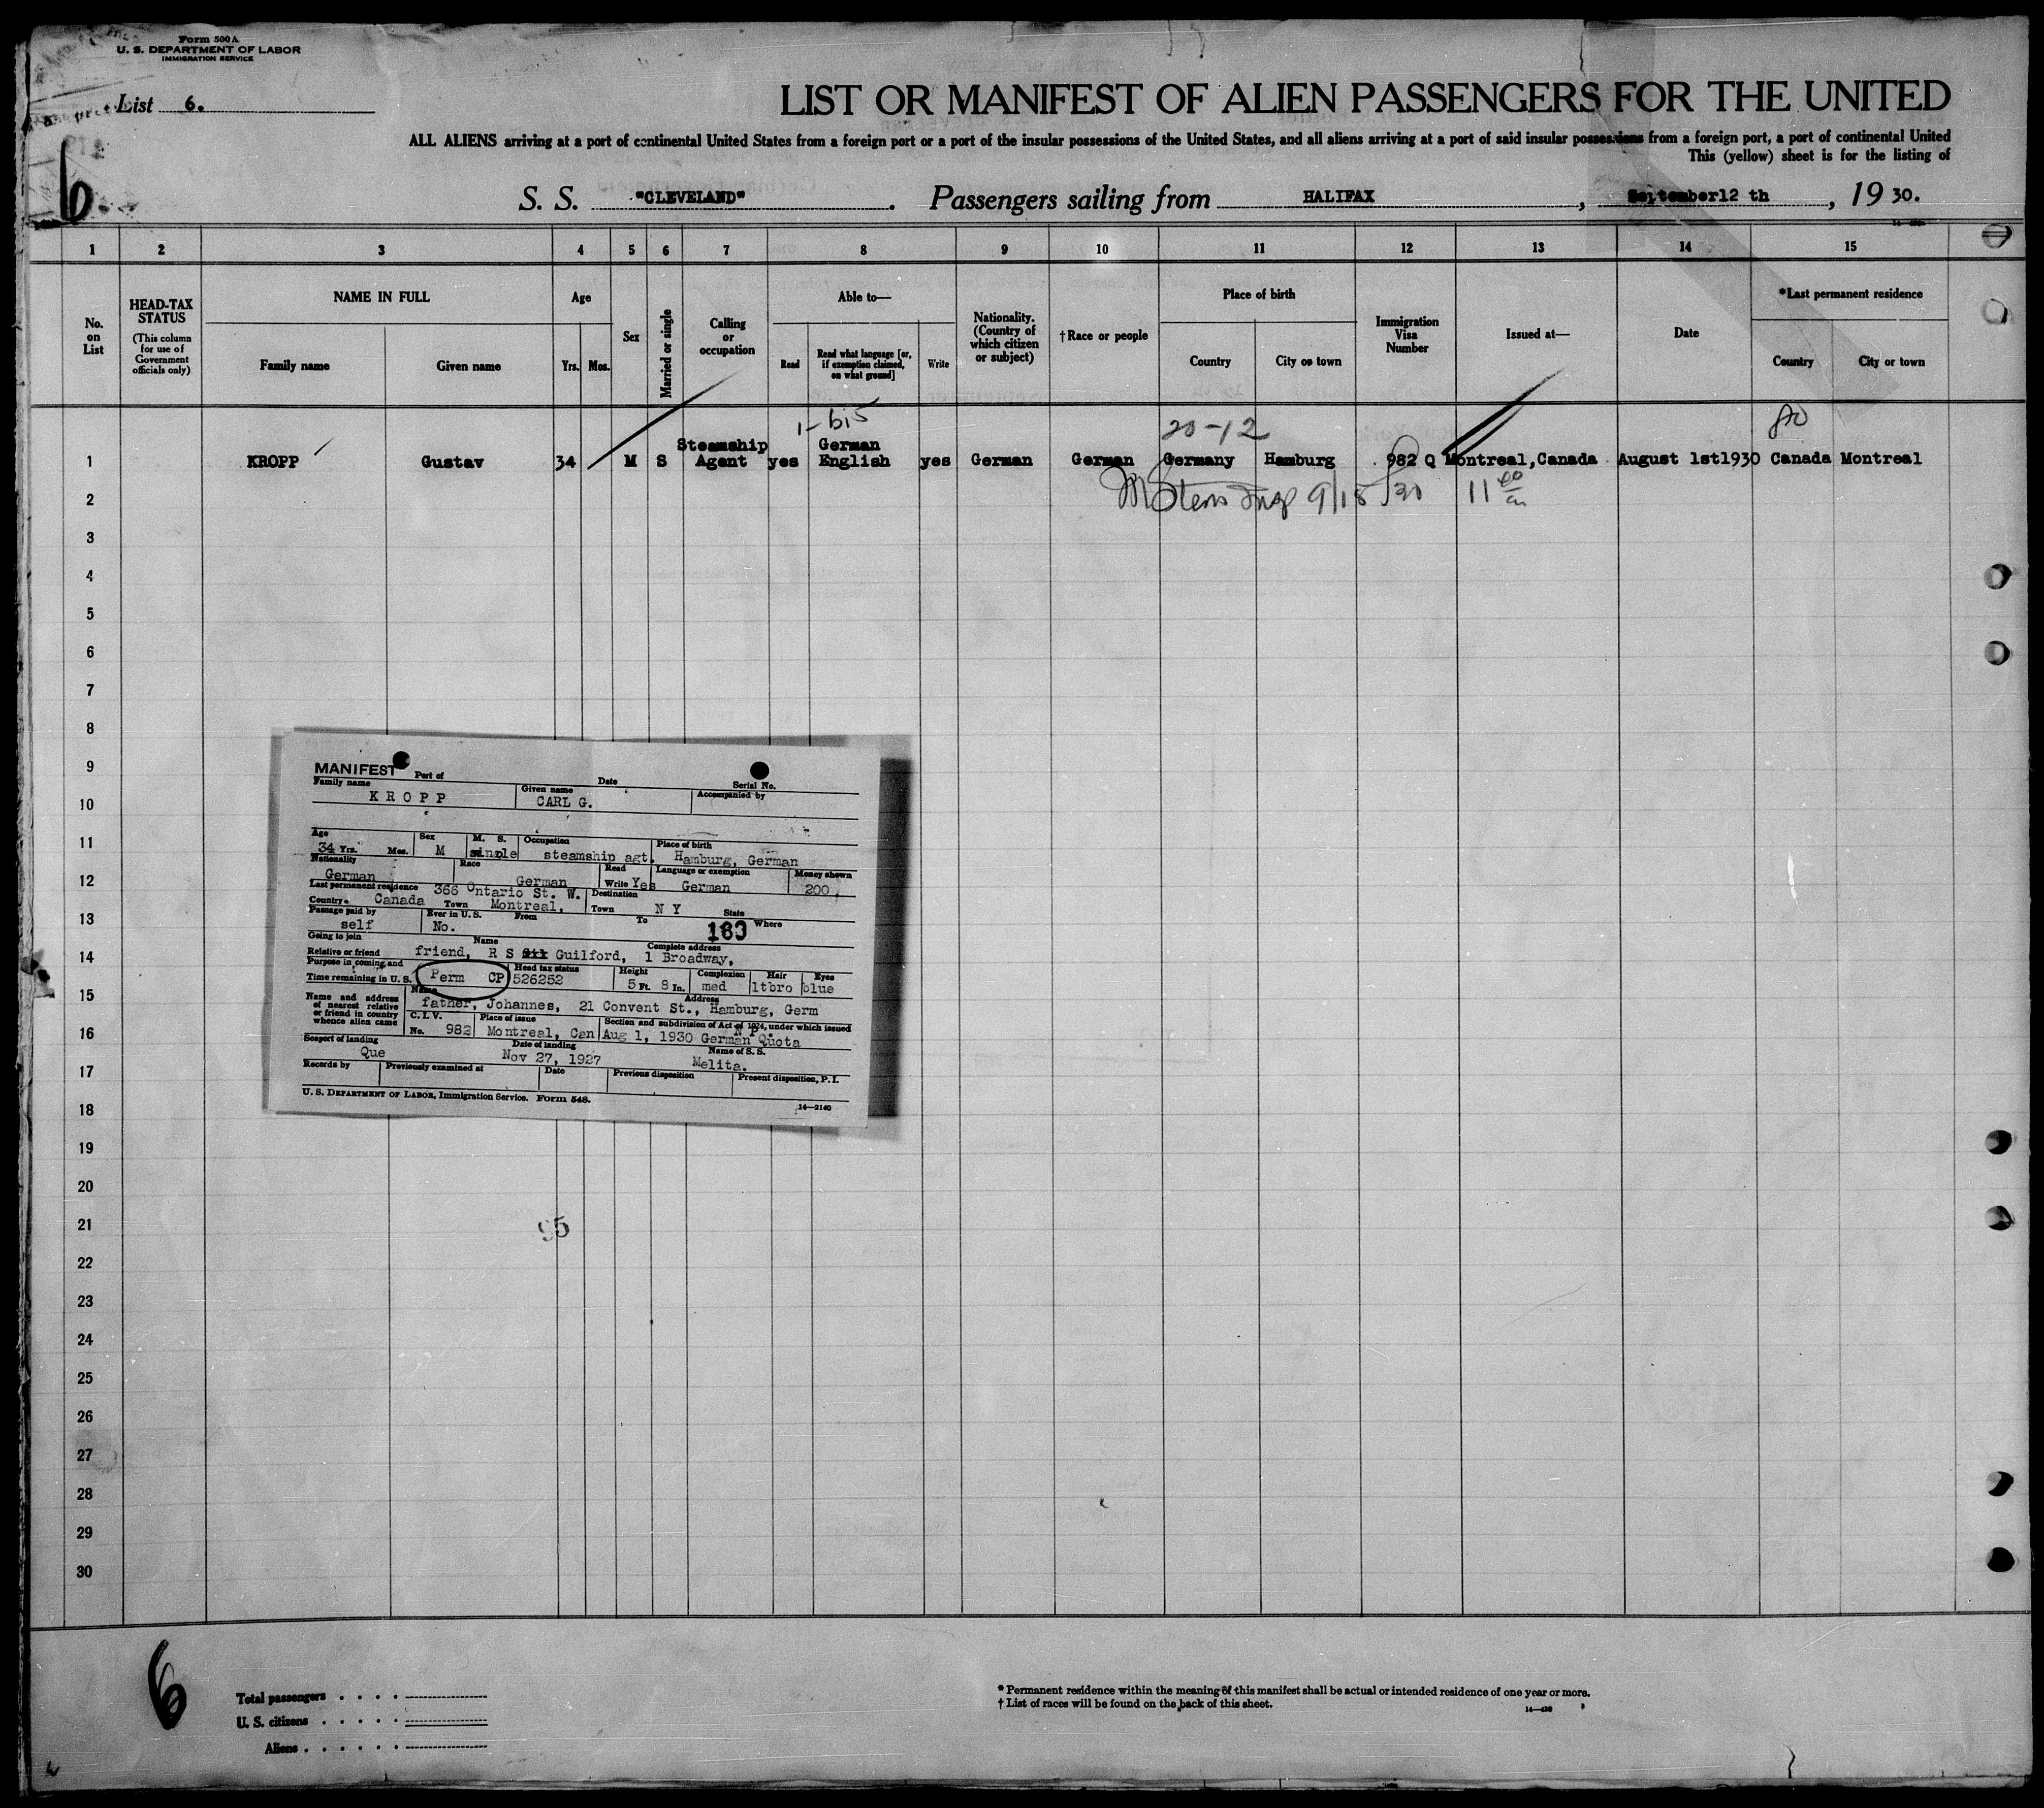 Form 500A
U. S. DEPARTMENT OF LABOR
IMMIGRATION SERVICE
List 6.
LIST OR MANIFEST OF ALIEN PASSENGERS FOR THE UNITED
ALL ALIENS arriving at a port of continental United States from a foreign port or a port of the insular possessions of the United States, and all aliens arriving at a port of said insular possessions from a foreign port, a port of continental United
This (yellow) sheet is for the listing of
6
S. S. "CLEVELAND". Passengers sailing from HALIFAX, September12 th, 19 30.
1 2 3 4 5 6 7 8 9 10 11 12 13 14 15
No. on List
HEAD-TAX STATUS
(This column for use of Government officials only)
NAME IN FULL
Family name Given name
Age
Yrs. Mos.
Sex
Married or single
Calling or occupation
Able to—
Read
Read what language [or, if exemption claimed, on what ground]
Write
Nationality. (Country of which citizen or subject)
†Race or people
Place of birth
Country City or town
Immigration Visa Number
Issued at—
Date
*Last permanent residence
Country City or town
20-12
1 KROPP Gustav 34 M S Steamship Agent yes German English yes German German Germany Hamburg 982 Q Montreal,Canada August 1st1930 Canada Montreal
9/15/30 11
2
3
4
5
6
7
8
9
10
11
12
13
14
15
16
17
18
19
20
21
22
23
24
25
26
27
28
29
30
MANIFEST Port of Date Serial No.
Family name Given name Accompanied by
KROPP CARL G.
Age Sex M. S. Occupation Place of birth
34 Yrs. Mos. M single steamship agt. Hamburg, German
Nationality Race Read Language or exemption Money shown
German German Write Yes German 200,
Last permanent residence 366 Ontario St. W. Destination
Country. Canada Town Montreal, Town N Y State
Passage paid by Ever in U.S. From To Where
self No. 180
Going to join Name Complete address
Relative or friend friend, R S Guilford, 1 Broadway,
Purpose in coming and Head tax status Height Complexion Hair Eyes
Time remaining in U. S. Perm CP 526252 5 Ft. 8 In. med ltbro blue
Name and address of nearest relative or friend in country whence alien came
Name Address
father, Johannes, 21 Convent St., Hamburg, Germ
C. I. V. Place of issue Section and subdivision of Act of 1924, under which issued
No. 982 Montreal, Can Aug 1, 1930 German NP. Quota
Seaport of landing Date of landing Name of S. S.
Que Nov 27, 1927 Melita.
Records by Previously examined at Date Previous disposition Present disposition, P. I.
U. S. DEPARTMENT OF LABOR, Immigration Service. Form 548.
14—2140
95
6
Total passengers
U. S. citizens
Aliens
* Permanent residence within the meaning of this manifest shall be actual or intended residence of one year or more.
† List of races will be found on the back of this sheet.